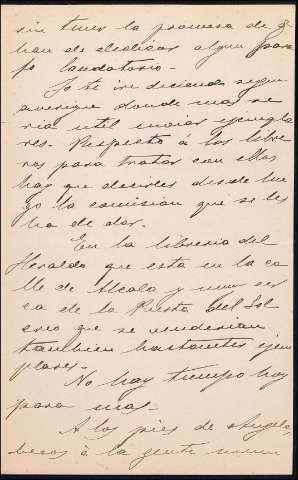 sin tener la promesa de q
han de dedicar algun párra-
fo laudatorio.-
Yo te iré diciendo segun
averigue donde mas se-
ria util enviar ejempla
res. Respecto á los libre-
ros para tratar con ellos
hay que decirles desde lue
go la comision que se les
ha de dar.
En la libreria del
Heraldo que esta en la ca
lle de Alcala y muy cer
ca de la Puerta del Sol
creo que se venderian
tambien bastantes ejem
plares.-
No hay tiempo hoy
para mas.-
A los pies de Angela,
besos á la gente